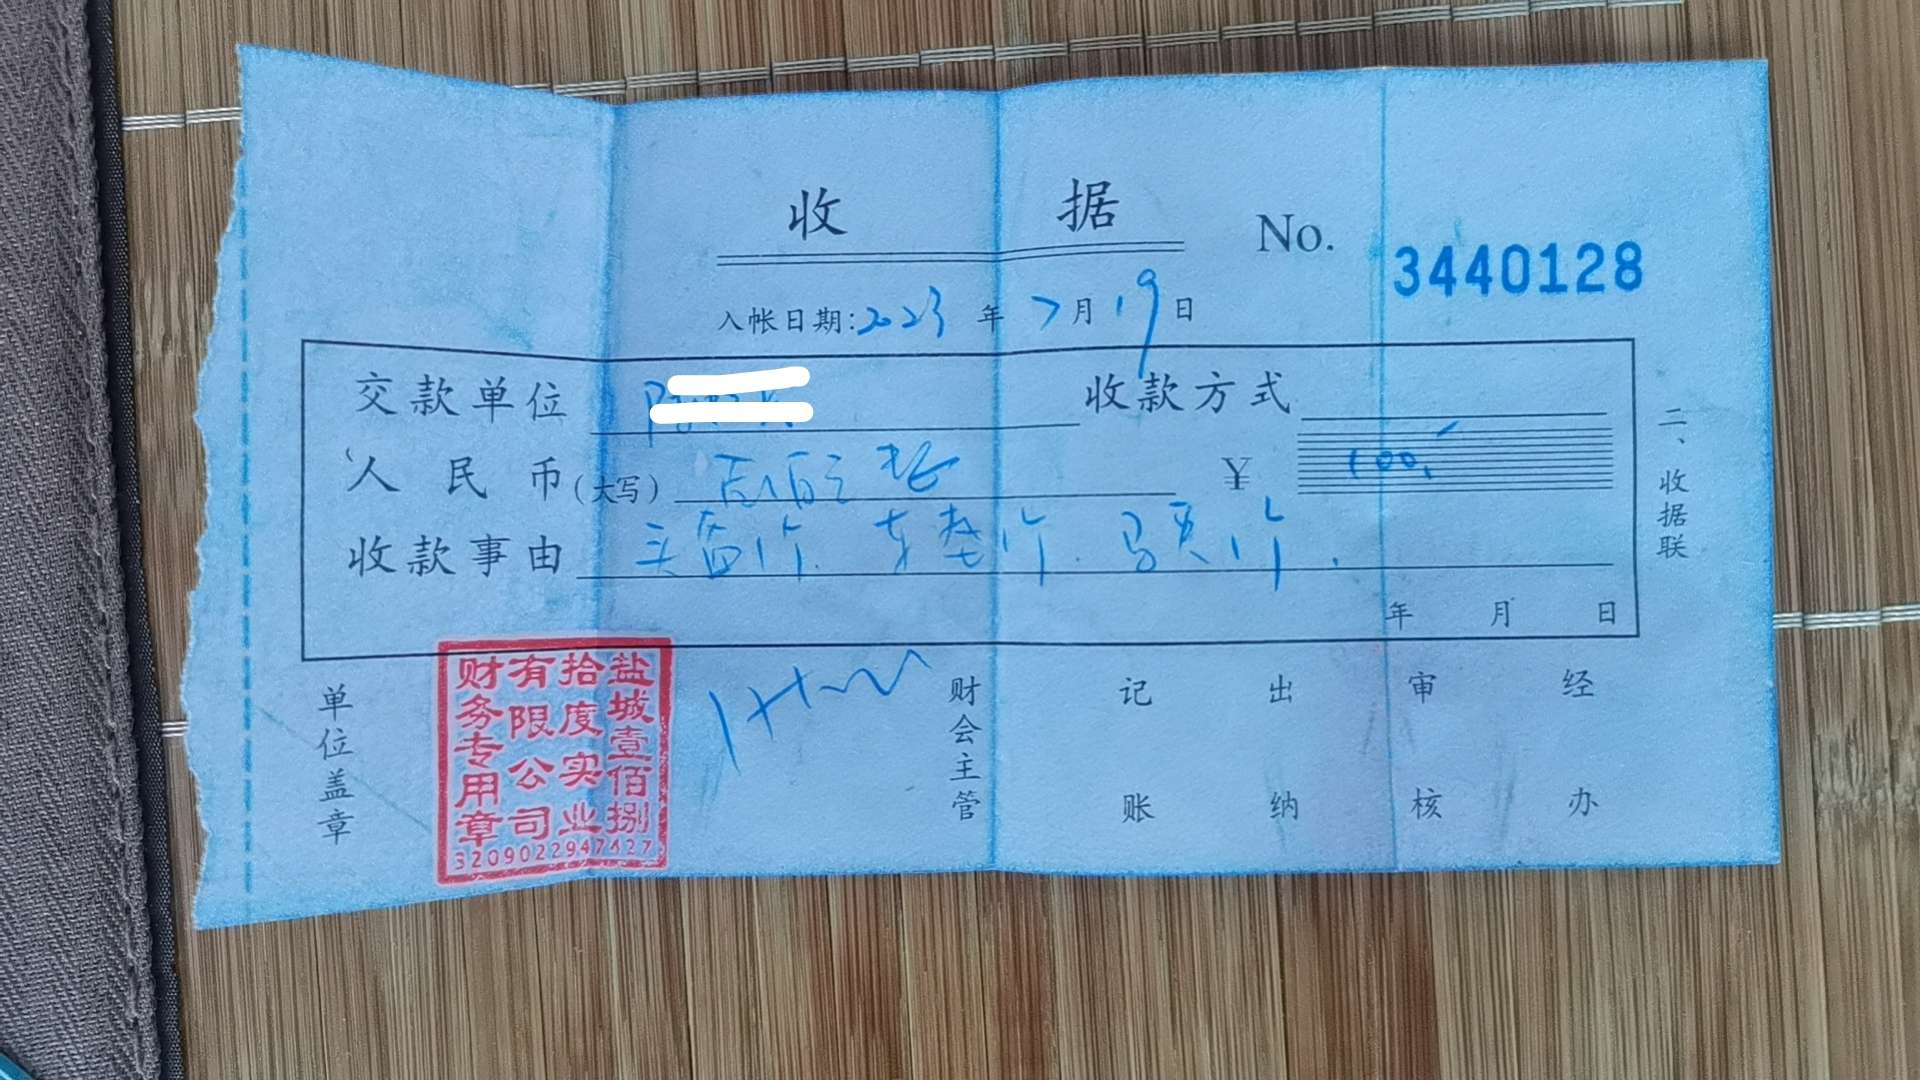 收 据 No. 3440128
入帐日期:2023 年 7 月 19 日
交款单位 收款方式
人民币(大写) ¥ 100.
收款事由 头盔1个. 车垫1个. 马夹1个.
年 月 日
二、收据联
单位盖章
盐城壹佰捌
拾度实业
有限公司
财务专用章
3209022947427
财会主管 记账 出纳 审核 经办